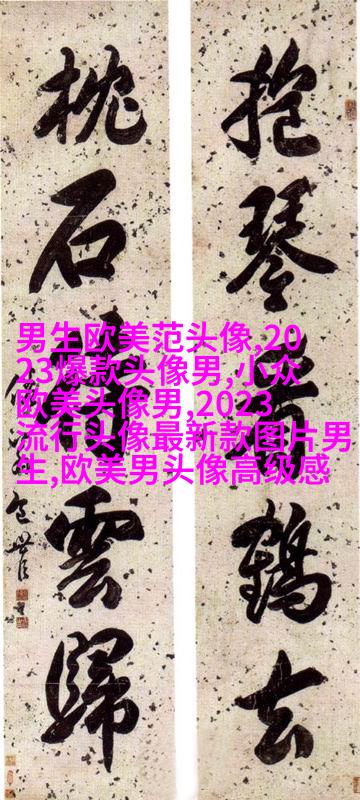 抱琴看鶴去
枕石待雲歸
包世臣
男生欧美范头像,20
23爆款头像男,小众
欧美头像男,2023
流行头像最新款图片男
生,欧美男头像高级感